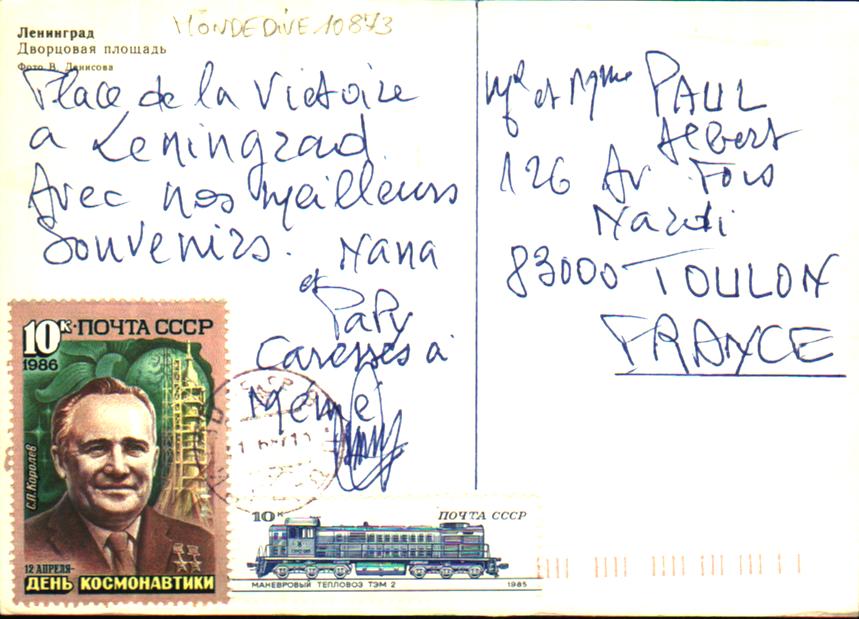 MONDEDIVE10873
Ленинград
Дворцовая площадь
Фото В. Денисова
Place de la Victoire
a Leningrad
Avec nos meilleurs
Souvenirs. Nana
et
Papy
Caresses a
Mémé
Mr et Mme PAUL
Albert
126 Av Fois
Nardi
83000 TOULON
FRANCE
10к·ПОЧТА СССР
1986
С.П.Королев
12 АПРЕЛЯ-
ДЕНЬ КОСМОНАВТИКИ
10к ПОЧТА СССР
МАНЕВРОВЫЙ ТЕПЛОВОЗ ТЭМ 2 1985